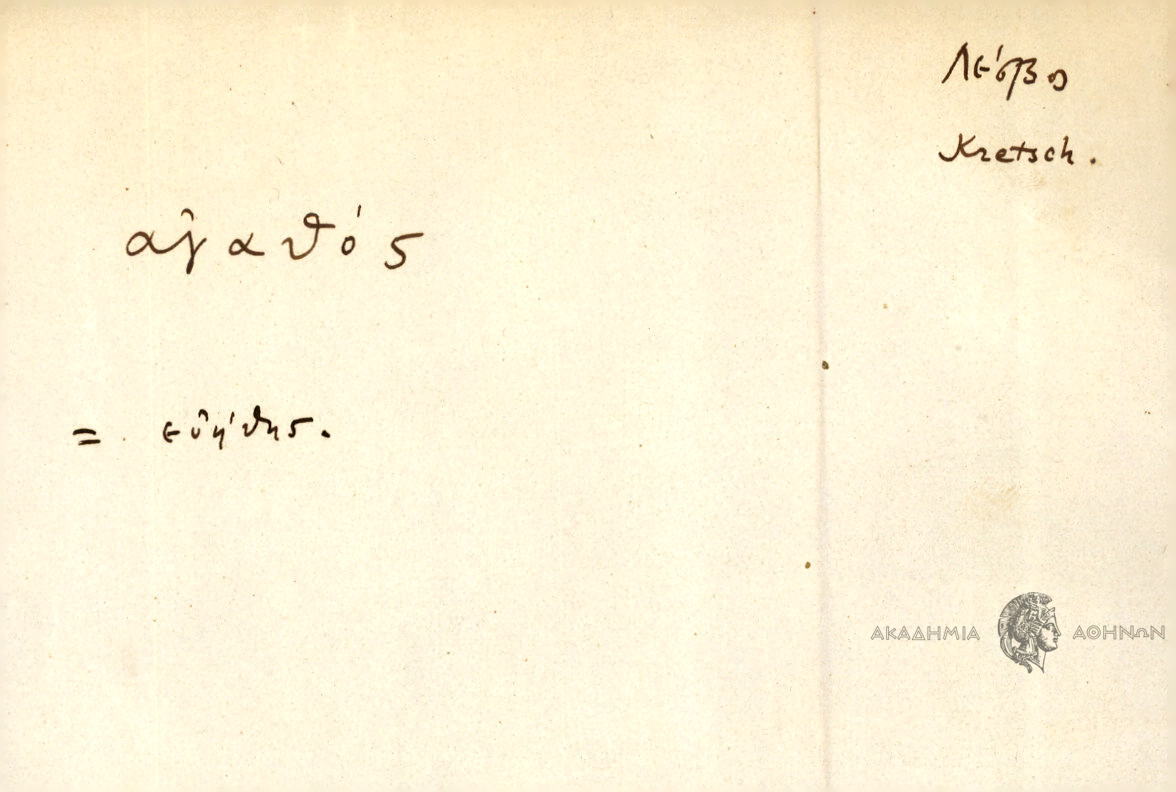 Λέσβος
Kretsch.
ἀγαθός
= εὐήθης.
ΑΚΑΔΗΜΙΑ ΑΘΗΝΩΝ